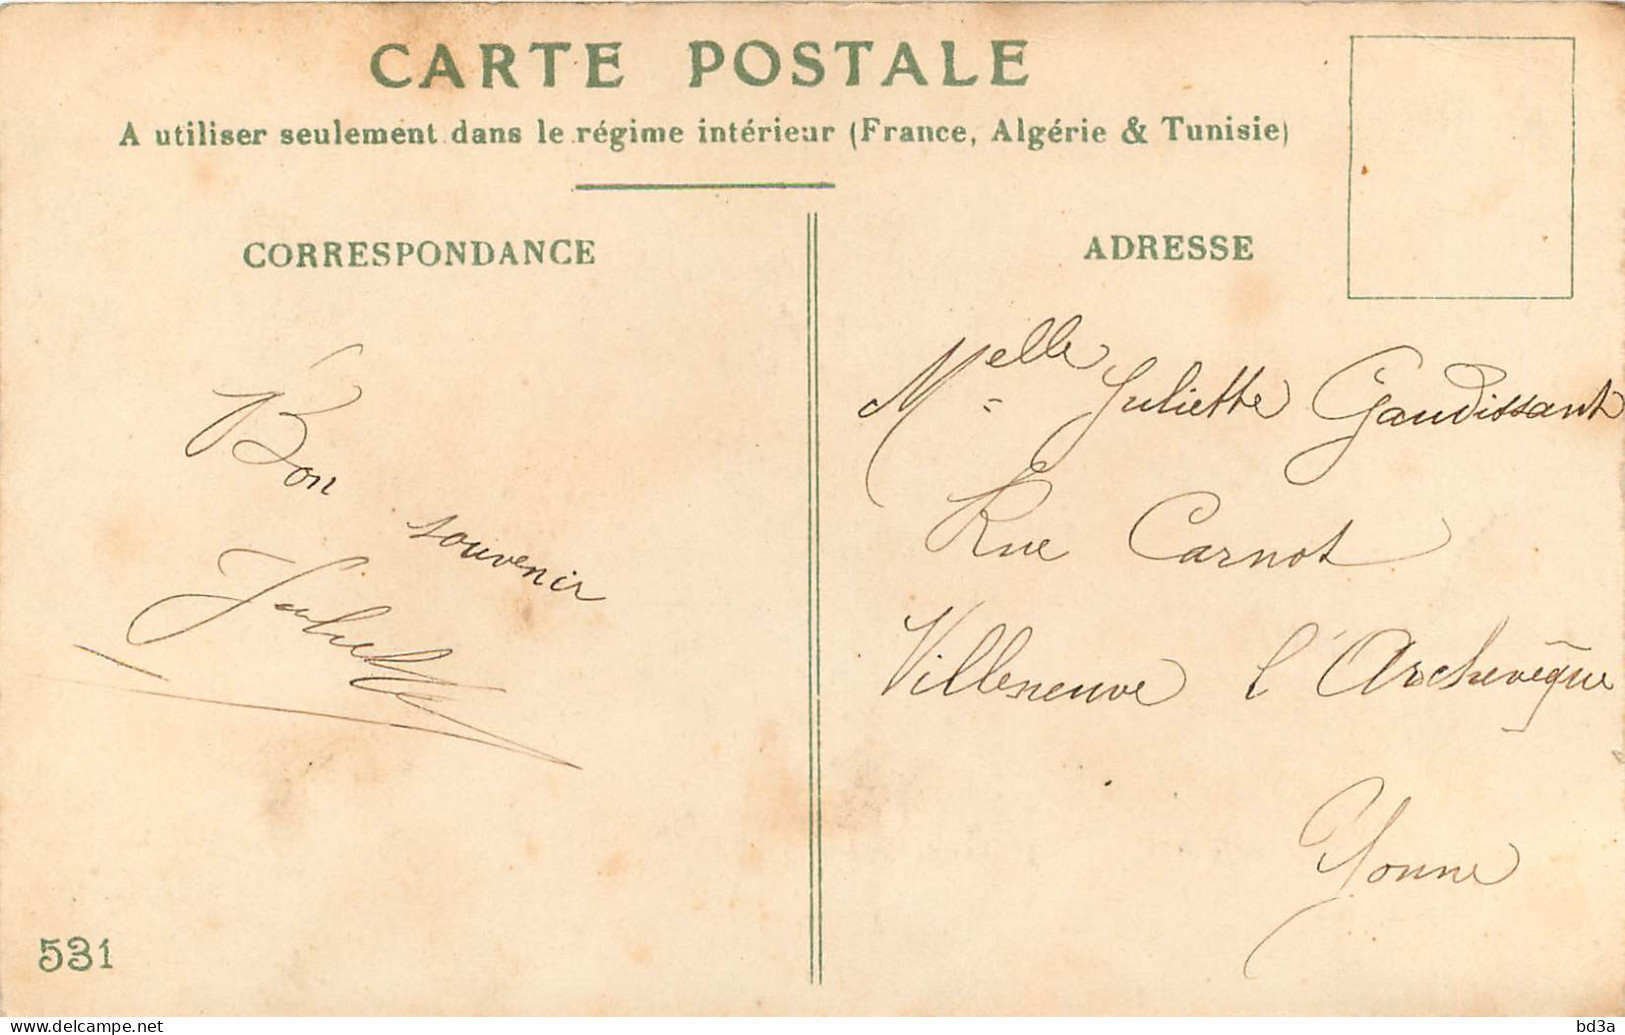 CARTE POSTALE
A utiliser seulement dans le régime intérieur (France, Algérie & Tunisie)
CORRESPONDANCE
Bon
souvenir
Juliette
531
ADRESSE
Melle Juliette Gaudissant
Rue Carnot
Villeneuve l'Archevêque
Yonne
delcampe.net
bd3a